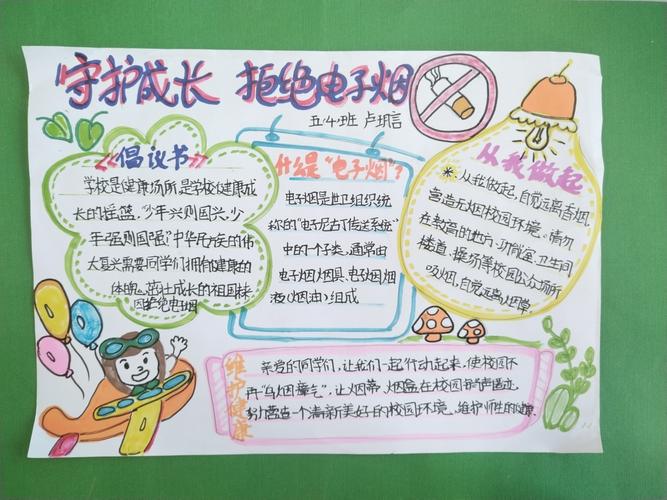 守护成长 拒绝电子烟
五4班 卢玥言
《倡议书》
学校是健康场所,是学校健康成
长的摇篮,“少年兴则国兴,少
年强则国强”中华民族的伟
大复兴需要同学们拥有健康的
体的。茁壮成长的祖国
因拒绝电子烟
什么是“电子烟”?
电子烟是世卫组织统
称的“电子尼古丁传送系统”
中的一个子类,通常由
电子烟烟具、电子烟烟
液(烟油)组成
从我做起
*:从我做起,自觉远离香烟,
营造无烟校园环境。请勿
在教高的地方、功能室、卫生间
楼道、操场等校园公众场所
吸烟,自觉远离烟草。
维护健康
亲爱的同学们,让我们一起行动起来,使校园不
再“乌烟瘴气”,让烟蒂、烟盒在校园销声匿迹,
努力营造一个清新美好的校园环境,维护师生的健康.